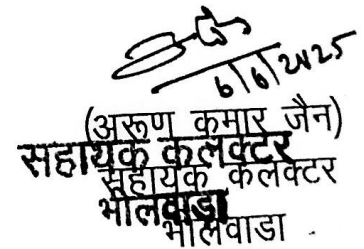 6/6/2025
(अरूण कुमार जैन)
सहायक कलेक्टर
सहायक कलेक्टर
भीलवाडा
भीलवाडा